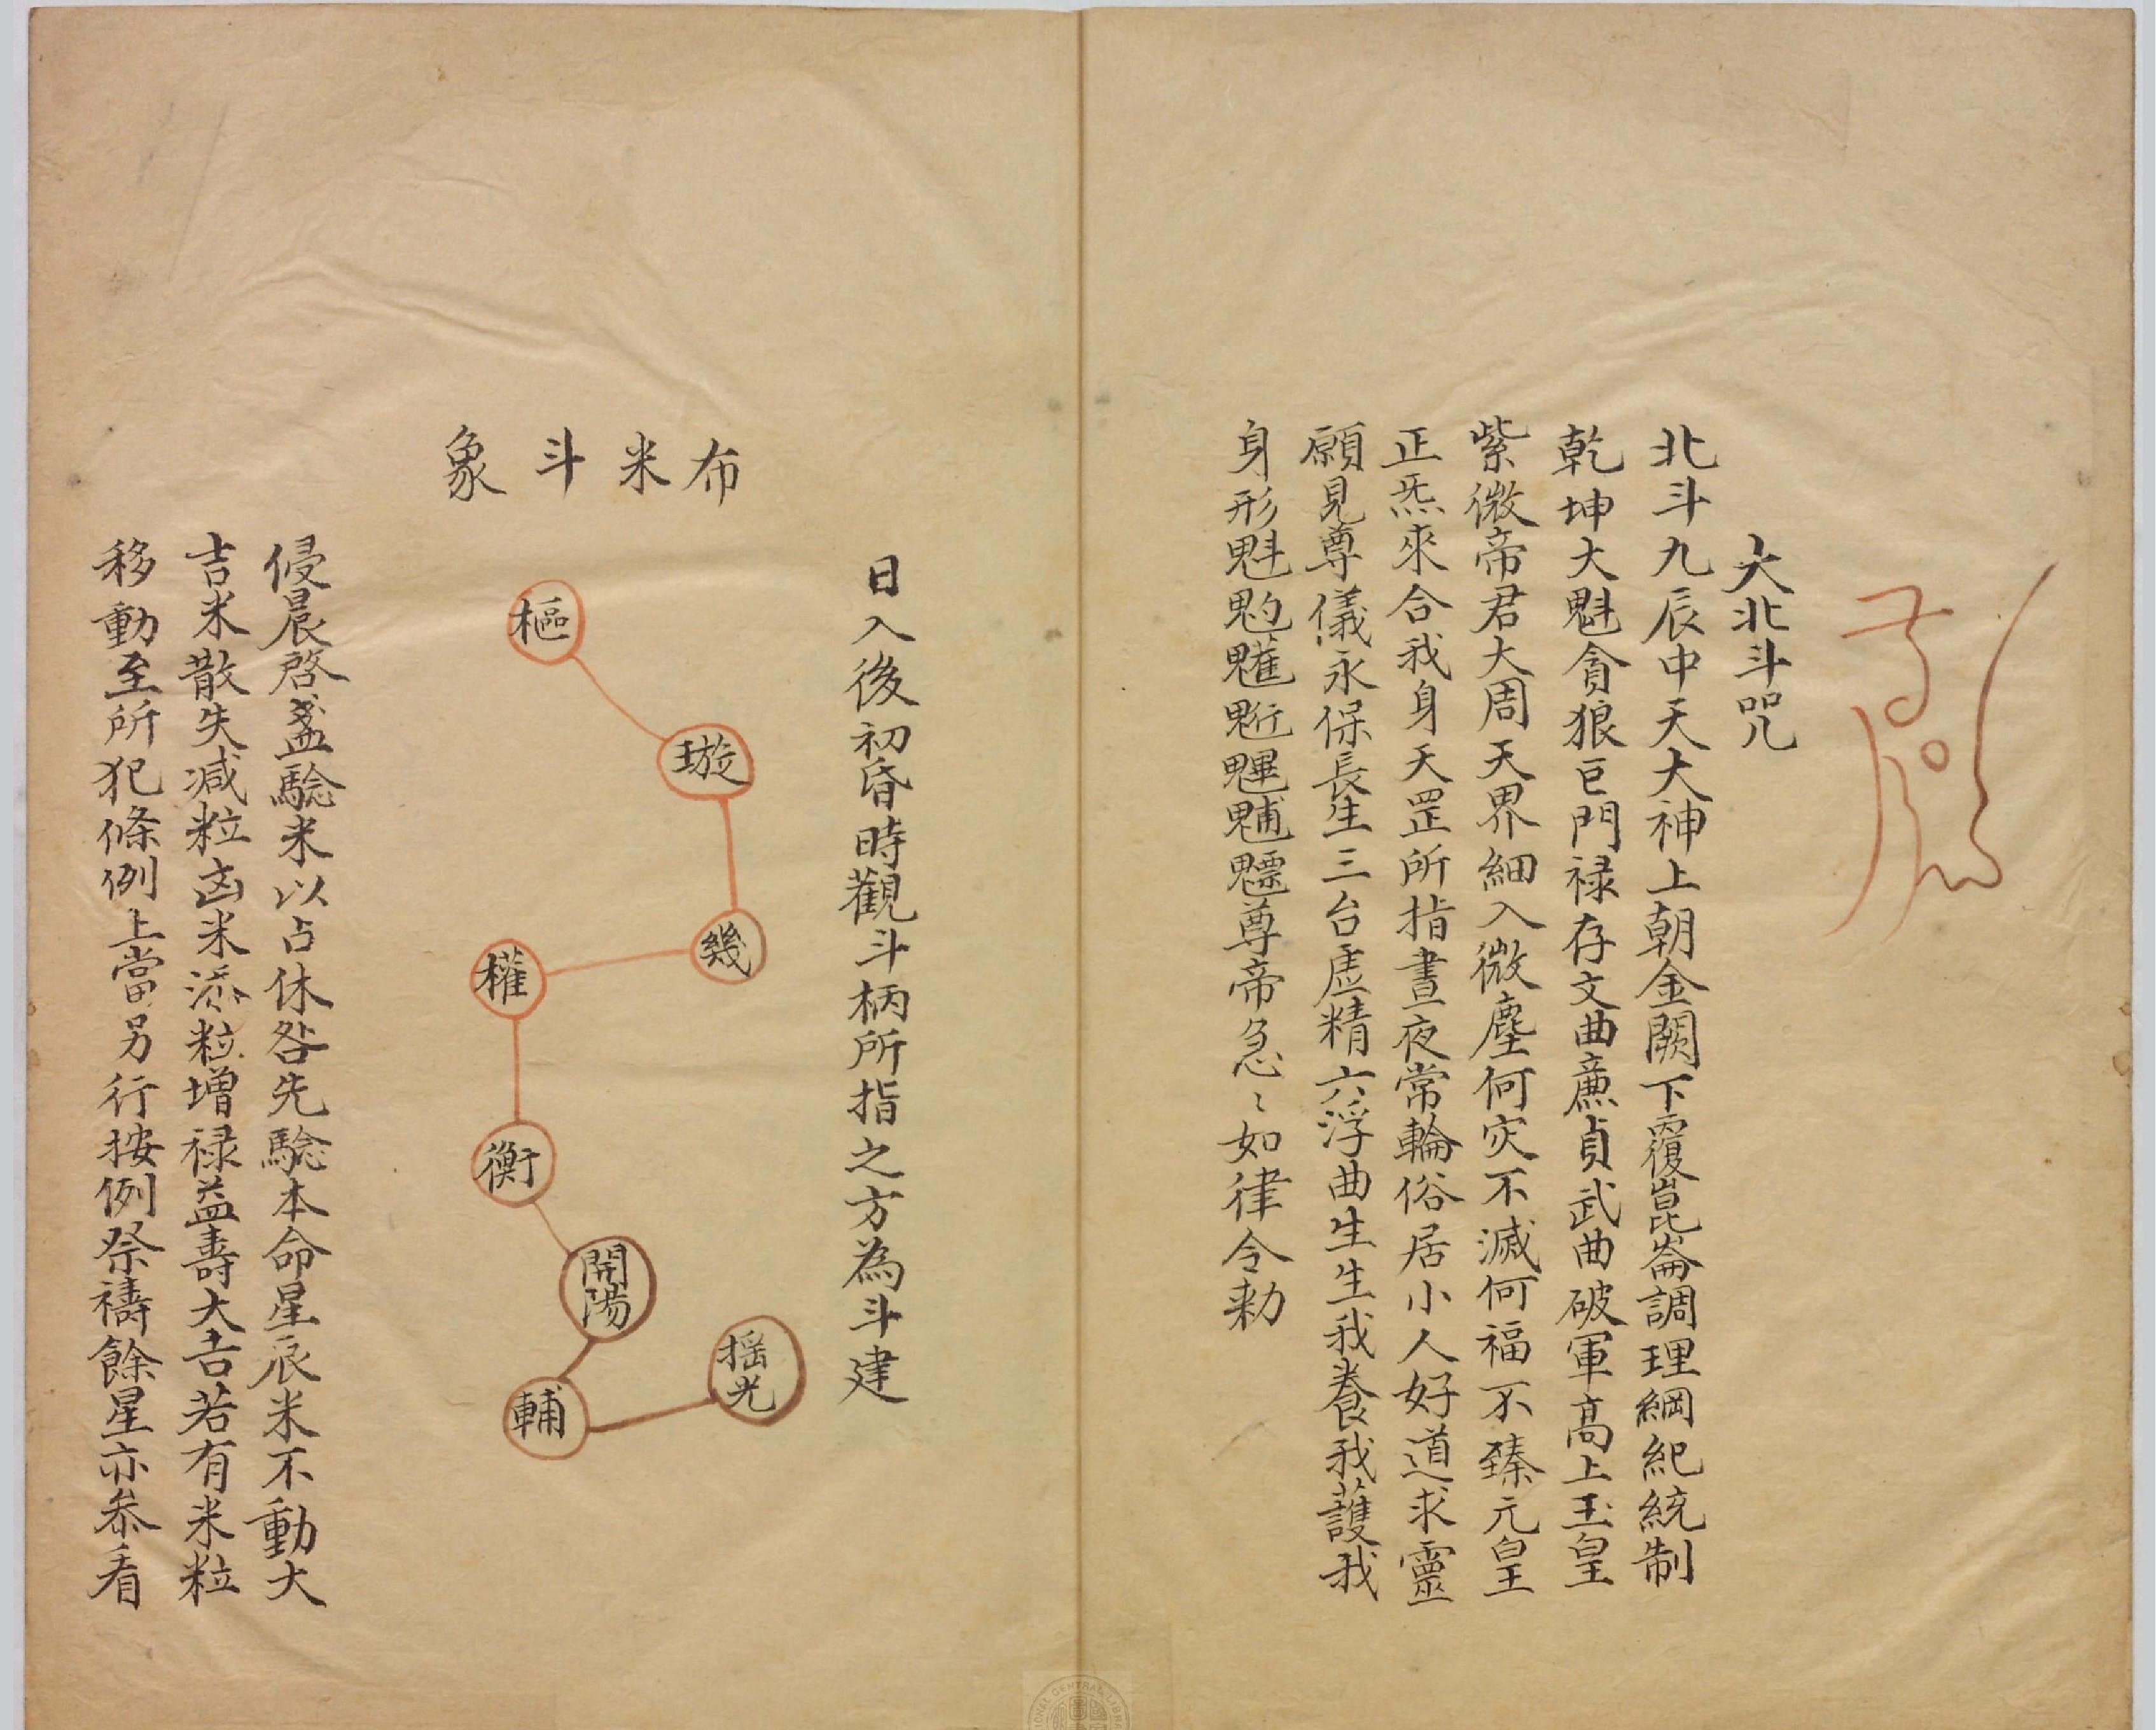 大北斗咒
北斗九辰中天大神上朝金闕下覆崑崙調理綱紀統制
乾坤大魁貪狼巨門禄存文曲廉貞武曲破軍高上玉皇
紫微帝君大周天界細入微塵何灾不滅何福不臻元皇
正炁來合我身天罡所指晝夜常輪俗居小人好道求靈
願見尊儀永保長生三台虛精六淳曲生生我養我護我
身形魁𩲃魓䰢魒尊帝急〻如律令勅
日入後初昏時觀斗柄所指之方為斗建
布米斗象
樞
璇
幾
權
衡
開陽
輔
摇光
侵晨啓盞驗米以占休咎先驗本命星辰米不動大
吉米散失减粒凶米添粒增禄益壽大吉若有米粒
移動至所犯條例上當另行按例祭禱餘星亦叅看